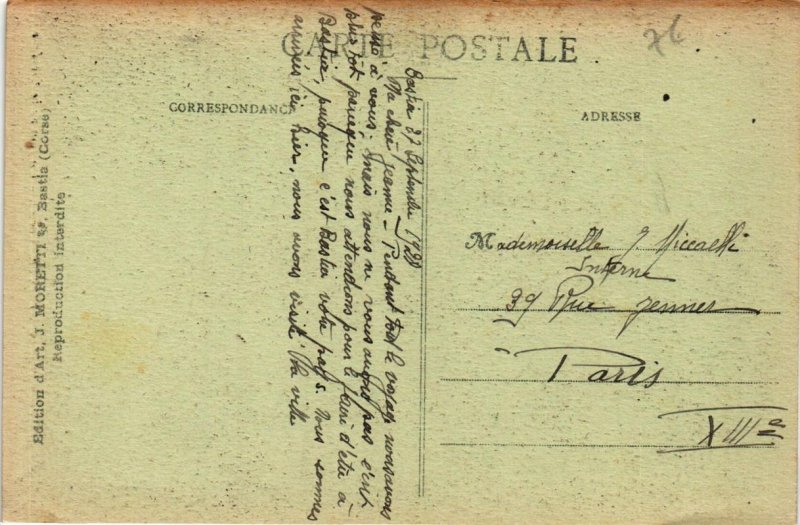 CARTE POSTALE
76
CORRESPONDANCE
ADRESSE
Bastia 27 Septembre 1928
Ma chère Jeanne - Pendant tout le voyage nous avons
pensé à vous, mais nous ne vous avons pas écrit
plus tôt parceque nous attendions pour le faire d'être à
Bastia, puisque c'est Bastia votre pays. Nous sommes
arrivés ici hier, nous avons visité la ville
Mademoiselle J Miccaelli
Interne
39 Rue Jenner
Paris
XIIIe
Edition d'Art, J. MORETTI, Bastia (Corse)
Reproduction interdite